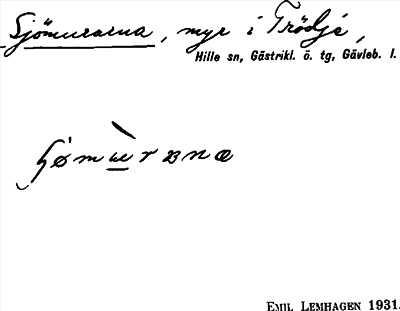 Sjömurarna, myr i Trödje,
Hille sn, Gästrikl. ö. tg, Gävleb. l.
EMIL LEMHAGEN 1931.